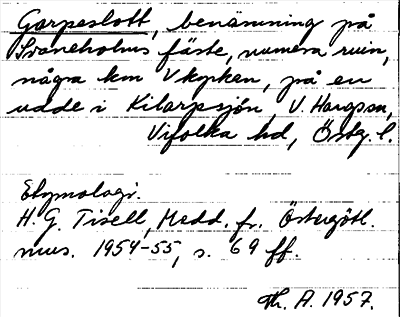 Garpeslott, benämning på
Svaneholms fäste, numera ruin,
några km V kyrkan, på en
udde i Kilarpsjön, V. Harg sn,
Vifolka hd, Östg. l.
Etymologi.
H. G. Tisell, Medd. fr. Östergötl.
mus. 1954-55, s. 69 ff.
Th. A. 1957.